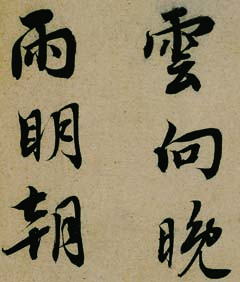 雲向晚
雨明朝